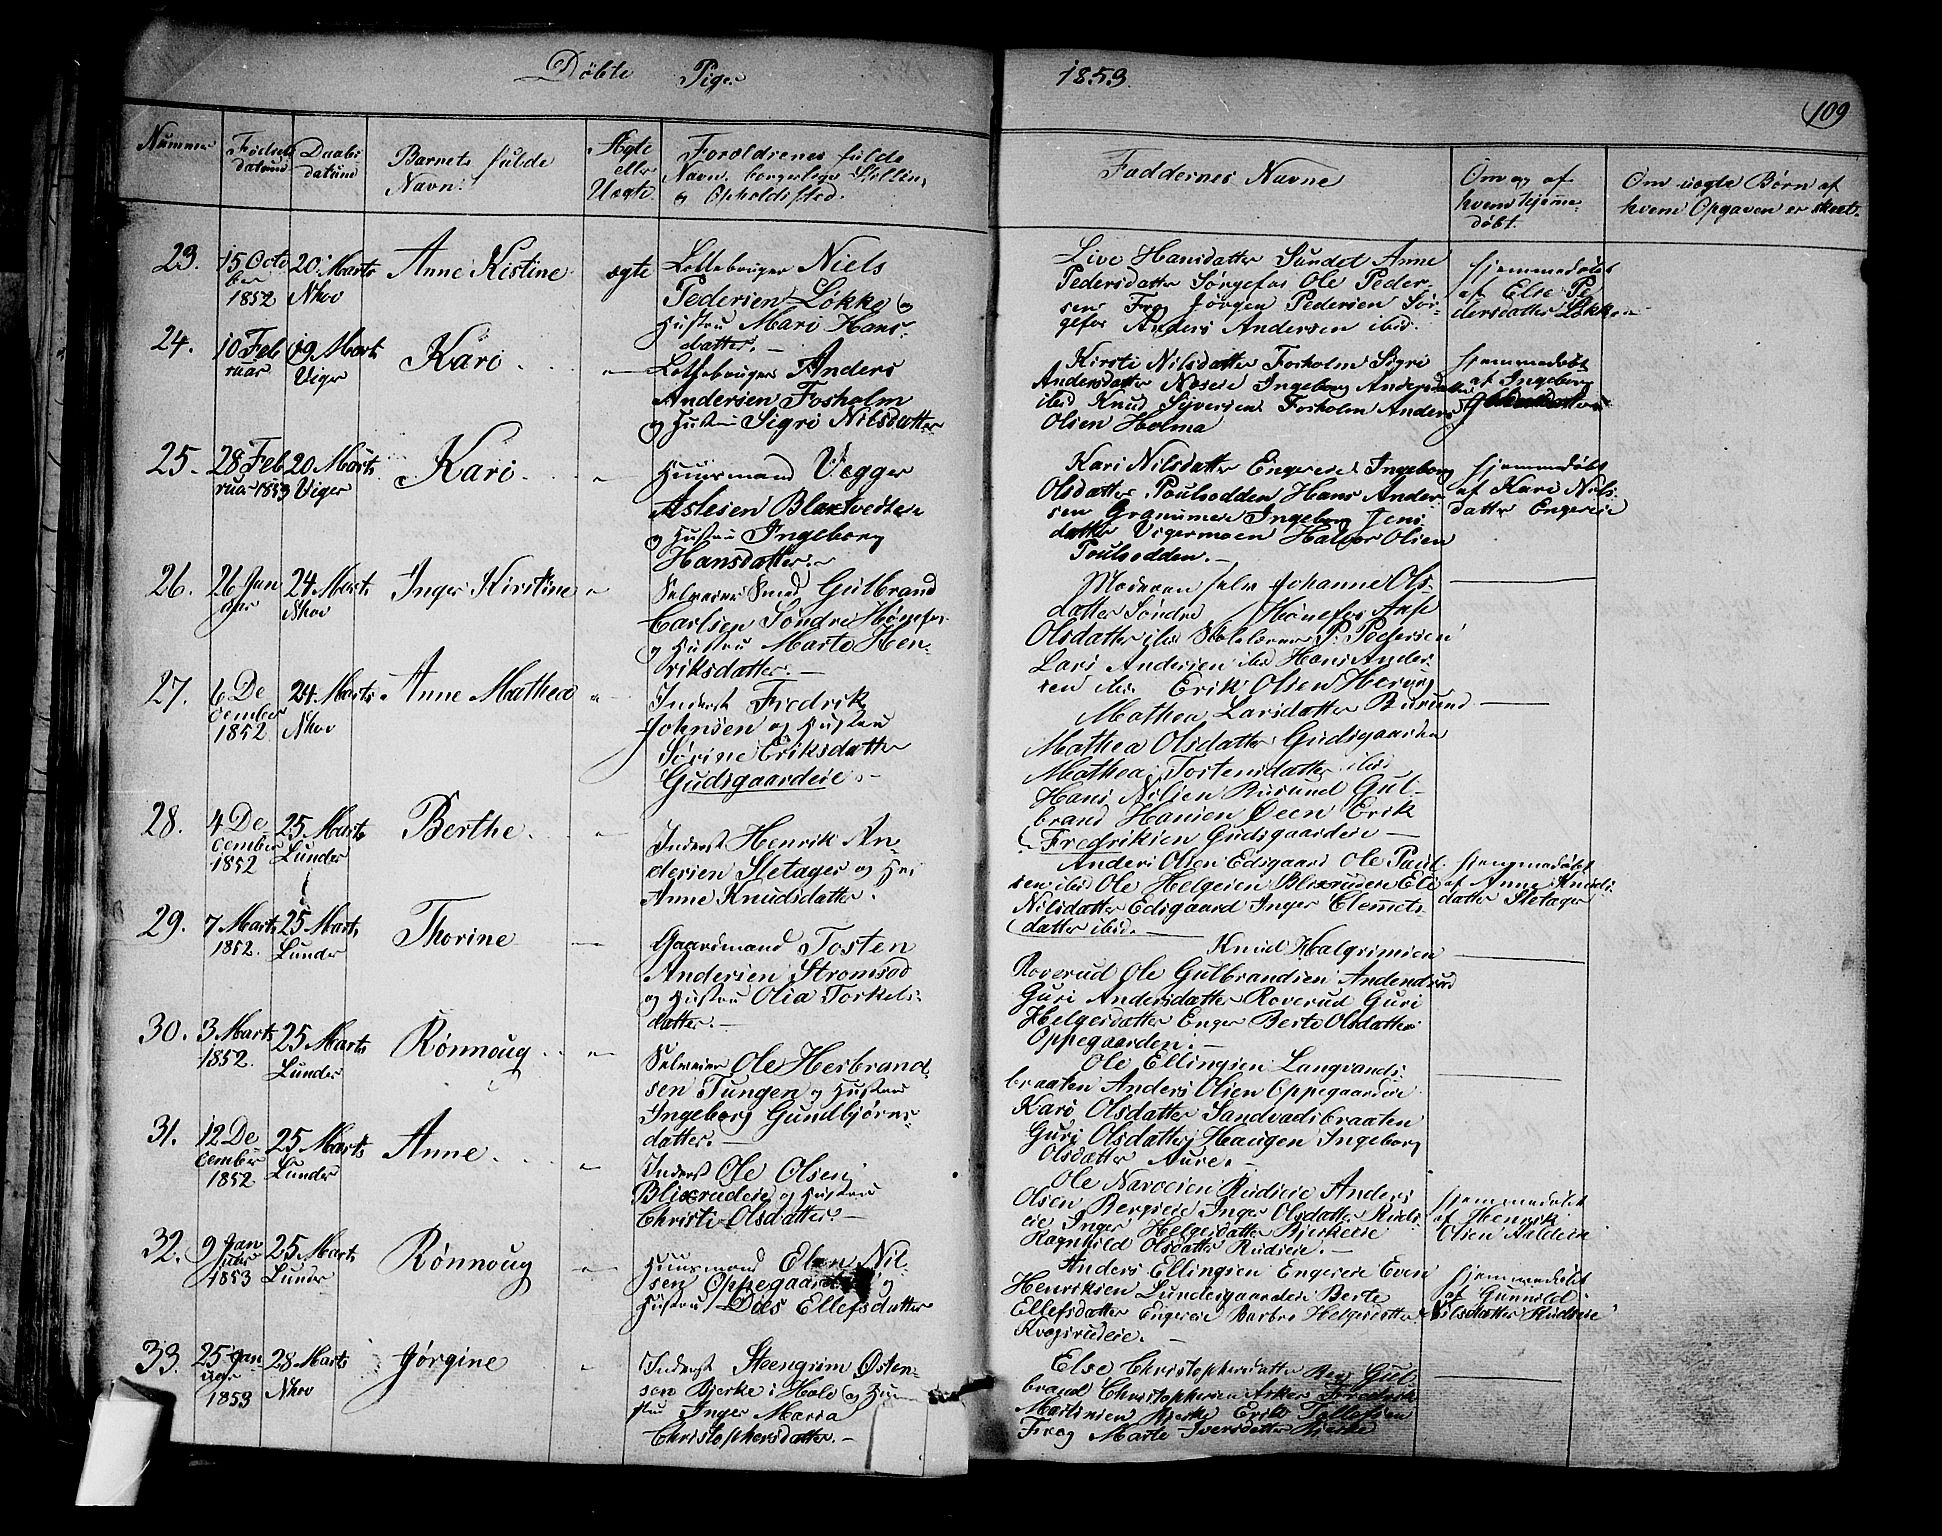 Döbte Piger
1853
109
Nummer
Födsels
datum
Daabs
datum
Barnets fulde
Navn.
Ægte
eller
Uægte
Forældrenes fulde
Navn, borgerlige Stilling
og Opholdssted.
Faddernes Navne
Om og af
hvem hjemme-
döbt.
Om uægte Börn af
hvem Opgaven er skeet.
23.
15 Octo
ber
1852
20 Marts
Nhov
Anne Kistine
ægte
Lottebruger Niels
Pedersen Lökke og
Hustru Mari Hans
datter.
Live Hansdatter Sundet Anne
Pedersdatter Sörgefos Ole Peder-
sen Frog Jörgen Pedersen Sör-
gefos Anders Andersen ibid.
hjemmedöbt
af Else Pe
dersdatter Lökken
24.
10 Feb
ruar
19 Marts
Viger
Kari
Lottebruger Anders
Andersen Fosholm
og Hustru Sigri Nilsdatter
Kirsti Nilsdatter Fosholm Sigri
Andersdatter Næseie Ingeborg Andersdatter
ibid Knud Siversen Fosholm Anders
Olsen Holma
hjemmedöbt
af Ingeborg
25.
28 Feb
ruar 1853
20 Marts
Viger
Kari
Huusmand Vegger
Aslesen Blaxtvedteie
og Hustru Ingeborg
Hansdatter.
Kari Nilsdatter Engereie Ingeborg
Olsdatter Poulsodden Hans Ander-
sen Granumeie Ingeborg Jens
datter Vigermoen Halvor Olsen
Poulsodden.
hjemmedöbt
af Kari Nils-
datter Engereie
26.
26 Jan
uar
24 Marts
Nhov
Inger Kirstine
Selveier Smed Gulbrand
Carlsen Söndre Hönefos
og Hustru Marte Hen-
riksdatter.
Moderen selv Johanne Ols-
datter Söndre Hönefos Anse
Olsdatter ibid Skolelærer P. Pedersen
Lars Andersen ibid Hans Ander-
sen ibid Erik Olsen Hervog
27.
6 De
cember
1852
24 Marts
Nhov
Anne Mathea
Inderst Fredrik
Johnsen og Hustru
Sörine Eriksdatter
Gudsgaardeie.
Mathea Larsdatter Busund
Mathea Olsdatter Gudsgaarden
Mathea Tostensdatter ibid
Hans Nilsen Busund Gul-
brand Hansen Öeen Erik
Fredriksen Gudsgaardeie
28.
4 De
cember
1852
25 Marts
Lunder
Berthe
Inderst Henrik An-
dersen Sletager og Hu
Anne Knudsdatter.
Anders Olsen Edsgaard Ole Paul
sen ibid Ole Helgesen Blixrudeie Eli
Nilsdatter Edsgaard Inger Clemmets-
datter ibid.
hjemmedöbt
af Anne Knuds-
datter Sletager
29.
7 Marts
1852.
25 Marts
Lunder
Thorine
Gaardmand Tosten
Andersen Strömsöd
og Hustru Olia Torkels-
datter.
Knud Halgrimsen
Roverud Ole Gulbrandsen Andendrud
Guri Andersdatter Roverud Guri
Helgesdatter Enger Berte Olsdatter
Oppegaarden.
30.
3 Marts
1852.
25 Marts
Lunder
Rönnoug
Selveier Ole Herbrand-
sen Tungen og Hustru
Ingeborg Gundbjörns
datter.
Ole Ellingsen Langvands-
braaten Anders Olsen Oppegaardeie
Kari Olsdatter Sandvadsbraaten
Guri Olsdatter Haugen Ingeborg
Olsdatter Aure.
31.
12 De
cember
1852
25 Marts
Lunder
Anne
Inderst Ole Olsen
Blixrudeie og Hustru
Christi Olsdatter.
Ole Narvesen Rudseie Anders
Olsen Bergseie Inger Olsdatter Ruds-
eie Inger Helgesdatter Bjerkeeie
Ragnhild Olsdatter Rudseie.
hjemmedöbt
af Henrik
Olsen
32.
9 Jan
uar
1853
25 Marts
Lunder
Rönnoug
Huusmand Elen Nil-
sen og
Hustru Ellefsdatter
Anders Ellingsen Engereie Even
Henriksen Lundergaardeie Berte
Ellefsdatter Engereie Barbro Helgesdatter
Kvogsrudeie.
hjemmedöbt
af Gunnild
Nilsdatter Rudseie
33.
25 Jan
uar
1853
28 Marts
Nhov
Jörgine
Inderst Steengrim Östen-
sen Bjerke i Hole og Hu
stru Inger Maria
Christophersdatter.
Else Christophersdatter Gul-
brand Christophersen Asker Fredrik
Martinsen Bjerke Erik Tollefsen
Frog Marte Iversdatter Bjerke